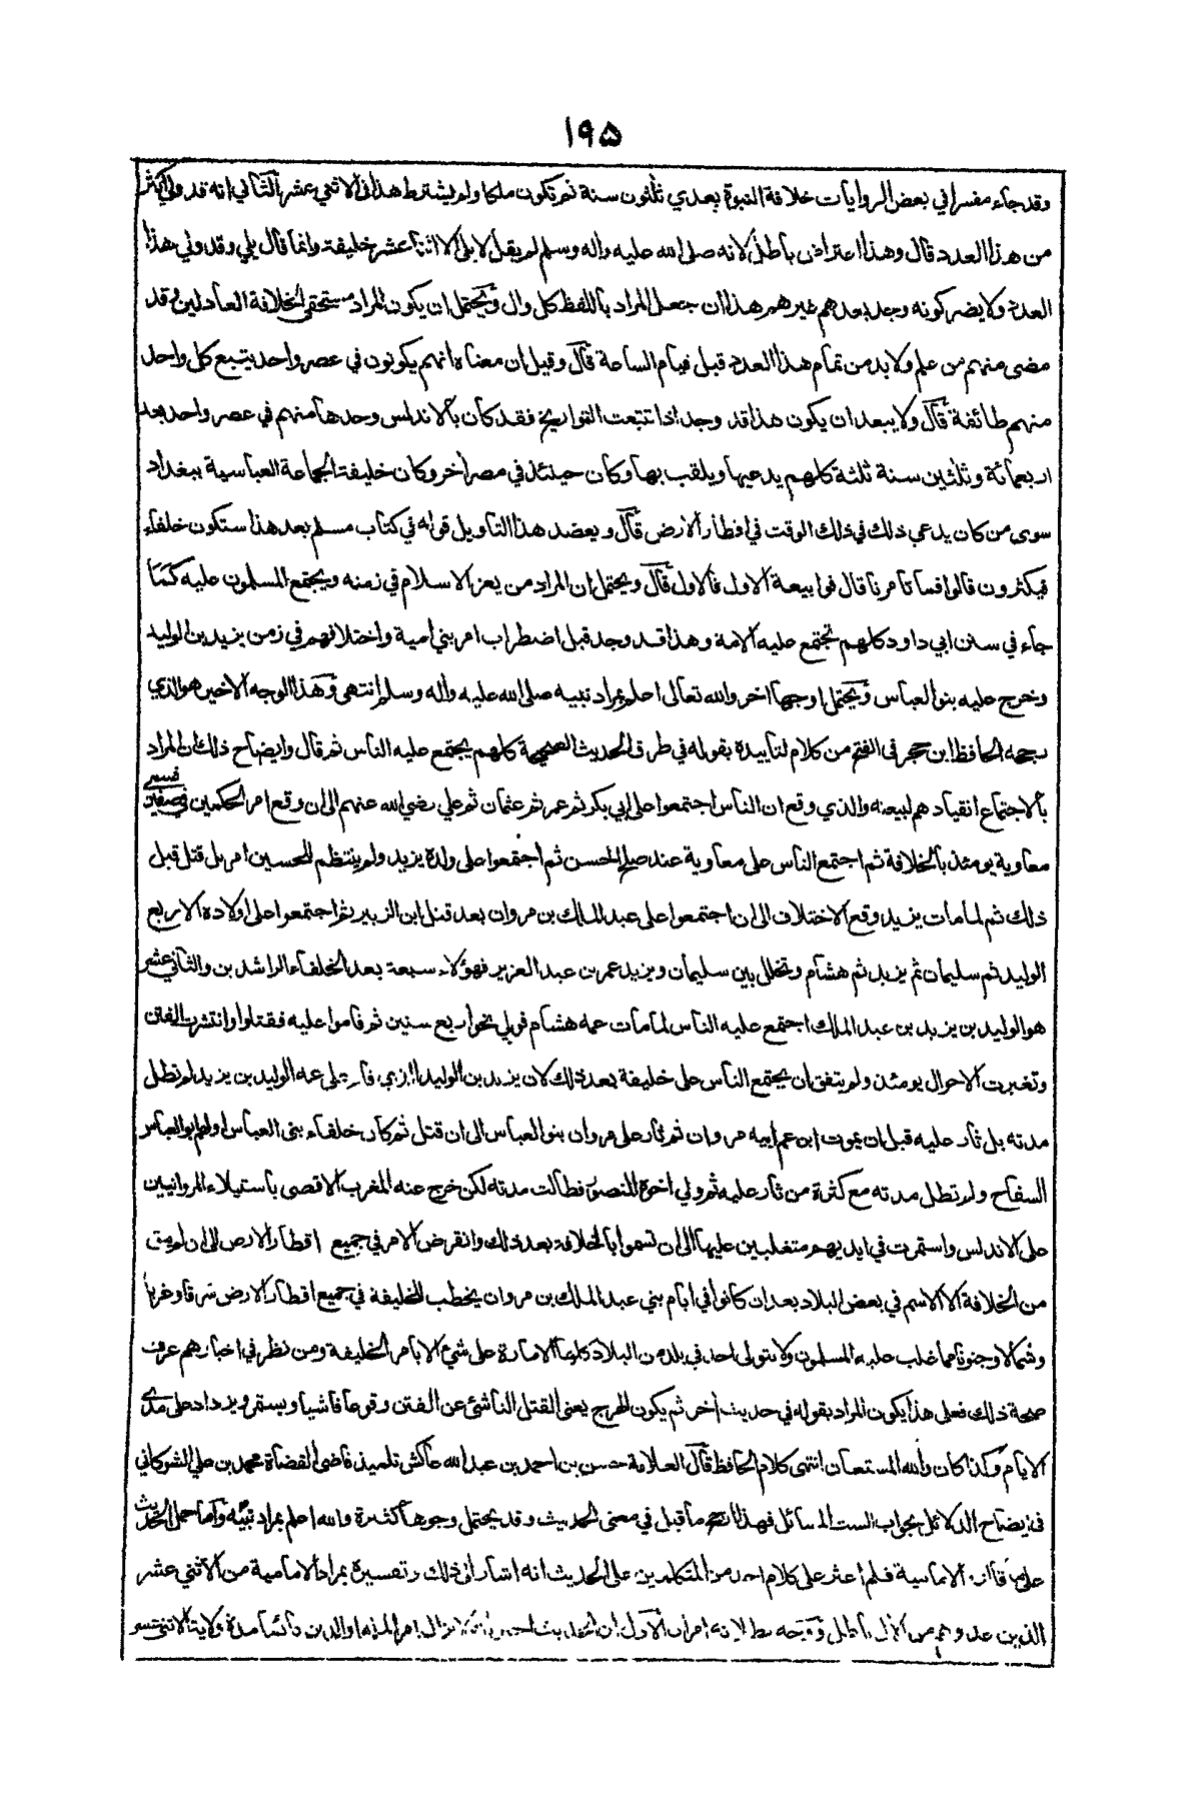 ١٩٥
وقد جاء مفسرا في بعض الروايات خلافة النبوة بعدي ثلثون سنة ثم تكون ملكا ولم يشترط هذا في الاثني عشر الثاني انه قد ولي اكثر
من هذا العدد قال وهذا اعتراض باطل لانه صلى الله عليه واله وسلم لم يقل لا يلي الا اثنا عشر خليفة وانما قال يلي وقد ولي هذا
العدد ولا يضر كونه وجد بعدهم غيرهم هذا ان جعل المراد باللفظ كل وال ويحتمل ان يكون المراد مستحقي الخلافة العادلين وقد
مضى منهم من علم ولا بد من تمام هذا العدد قبل قيام الساعة قال وقيل ان معناه انهم يكونون في عصر واحد يتبع كل واحد
منهم طائفة قال ولا يبعد ان يكون هذا قد وجد اذا تتبعت التواريخ فقد كان بالاندلس وحدها منهم في عصر واحد بعد
اربعمائة وثلثين سنة ثلثة كلهم يدعيها ويلقب بها وكان حينئذ في مصر اخر وكان خليفة الجماعة العباسية ببغداد
سوى من كان يدعي ذلك في ذلك الوقت في اقطار الارض قال ويعضد هذا التاويل قوله في كتاب مسلم بعد هذا ستكون خلفاء
فيكثرون قالوا فما تامرنا قال فوا بيعة الاول فالاول قال ويحتمل ان المراد من يعز الاسلام في زمنه ويجتمع المسلمون عليه كما
جاء في سنن ابي داود كلهم تجتمع عليه الامة وهذا قد وجد قبل اضطراب امر بني امية واختلافهم في زمن يزيد بن الوليد
وخرج عليه بنو العباس ويحتمل اوجها اخر والله تعالى اعلم بمراد نبيه صلى الله عليه واله وسلم انتهى وهذا الوجه الاخير هو الذي
رجحه الحافظ ابن حجر في الفتح من كلام لتاييده بقوله في طرف الحديث الصحيحة كلهم يجتمع عليه الناس ثم قال وايضاح ذلك ان المراد
بالاجتماع انقيادهم لبيعته والذي وقع ان الناس اجتمعوا على ابي بكر ثم عمر ثم عثمان ثم علي رضي الله عنهم الى ان وقع امر الحكمين في صفين فسمي
معاوية يومئذ بالخلافة ثم اجتمع الناس على معاوية عند صلح الحسن ثم اجتمعوا على ولده يزيد ولم ينتظم للحسين امر بل قتل قبل
ذلك ثم لما مات يزيد وقع الاختلاف الى ان اجتمعوا على عبد الملك بن مروان بعد قتل ابن الزبير ثم اجتمعوا على اولاده الاربع
الوليد ثم سليمان ثم يزيد ثم هشام وتخلل بين سليمان ويزيد عمر بن عبد العزيز فهؤلاء سبعة بعد الخلفاء الراشدين والثاني عشر
هو الوليد بن يزيد بن عبد الملك اجتمع عليه الناس لما مات عمه هشام فولي نحو اربع سنين ثم قاموا عليه فقتلوا وانتشرت الفتن
وتغيرت الاحوال يومئذ ولم يتفق ان يجتمع الناس على خليفة بعد ذلك لان يزيد بن الوليد الذي قام على عمه الوليد بن يزيد لم تطل
مدته بل ثار عليه قبل ان يموت ابن عم ابيه مروان ثم ثار على مروان بنو العباس الى ان قتل ثم كان خلفاء بني العباس اولهم ابو العباس
السفاح ولم تطل مدته مع كثرة من ثار عليه ثم ولي اخوه المنصور فطالت مدته لكن خرج عنه المغرب الاقصى باستيلاء المروانيين
على الاندلس واستمرت في ايديهم متغلبين عليها الى ان تسموا بالخلافة بعد ذلك وانقرض الامر في جميع اقطار الارض الى ان لم يبق
من الخلافة الا الاسم في بعض البلاد بعد ان كانوا في ايام بني عبد الملك بن مروان يخطب للخليفة في جميع اقطار الارض شرقا وغربا
وشمالا وجنوبا مما غلب عليه المسلمون ولا يتولى احد في بلد من البلاد كلها الامارة على شيء الا بامر الخليفة ومن نظر في اخبارهم عرف
صحة ذلك فعلى هذا يكون المراد بقوله في حديث اخر ثم يكون الهرج يعني القتل الناشئ عن الفتن وقوعا فاشيا ويستمر ويزداد على مدى
الايام وكذا كان والله المستعان انتهى كلام الحافظ قال العلامة حسن بن احمد بن عبد الله عاكش تلميذ قاضي القضاة محمد بن علي الشوكاني
في ايضاح الدلائل بجواب الست المسائل فهذا ارجح ما قيل في معنى الحديث وقد يحتمل وجوها كثيرة والله اعلم بمراد نبيه واما حمل الحديث
على ما قال الامامية فلم اعثر على كلام احد من المتكلمين على الحديث انه اشار الى ذلك وتفسيره بمراد الامامية من الاثني عشر
الذين عدوهم من باطل ووجه بطلانه امران الاول ان الحديث لا يزال امر والدين قائما مدة ولاية الاثني